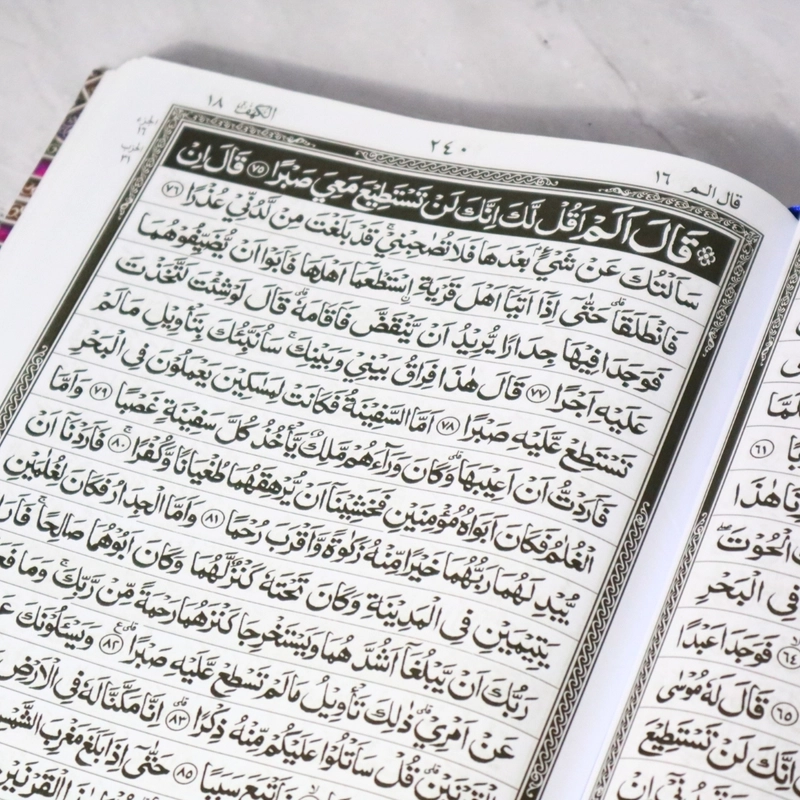 قال الم ١٦
٢٤٠
الكهف ١٨
الجزء ١٦
الحزب ٣١
۞ قَالَ اَلَمْ اَقُلْ لَّكَ اِنَّكَ لَنْ تَسْتَطِيْعَ مَعِيَ صَبْرًا ٧٥ قَالَ اِنْ
سَاَلْتُكَ عَنْ شَيْءٍۢ بَعْدَهَا فَلَا تُصٰحِبْنِيْۚ قَدْ بَلَغْتَ مِنْ لَّدُنِّيْ عُذْرًا ٧٦
فَانْطَلَقَاۗ حَتّٰىٓ اِذَآ اَتَيَآ اَهْلَ قَرْيَةِ ِۨاسْتَطْعَمَآ اَهْلَهَا فَاَبَوْا اَنْ يُّضَيِّفُوْهُمَا
فَوَجَدَا فِيْهَا جِدَارًا يُّرِيْدُ اَنْ يَّنْقَضَّ فَاَقَامَهٗۗ قَالَ لَوْ شِئْتَ لَتَّخَذْتَ
عَلَيْهِ اَجْرًا ٧٧ قَالَ هٰذَا فِرَاقُ بَيْنِيْ وَبَيْنِكَۚ سَاُنَبِّئُكَ بِتَأْوِيْلِ مَا لَمْ
تَسْتَطِعْ عَّلَيْهِ صَبْرًا ٧٨ اَمَّا السَّفِيْنَةُ فَكَانَتْ لِمَسٰكِيْنَ يَعْمَلُوْنَ فِى الْبَحْرِ
فَاَرَدْتُّ اَنْ اَعِيْبَهَاۗ وَكَانَ وَرَاۤءَهُمْ مَّلِكٌ يَّأْخُذُ كُلَّ سَفِيْنَةٍ غَصْبًا ٧٩ وَاَمَّا
الْغُلٰمُ فَكَانَ اَبَوَاهُ مُؤْمِنَيْنِ فَخَشِيْنَآ اَنْ يُّرْهِقَهُمَا طُغْيَانًا وَّكُفْرًاۚ ٨٠ فَاَرَدْنَآ اَنْ
يُّبْدِلَهُمَا رَبُّهُمَا خَيْرًا مِّنْهُ زَكٰوةً وَّاَقْرَبَ رُحْمًا ٨١ وَاَمَّا الْجِدَارُ فَكَانَ لِغُلٰمَيْنِ
يَتِيْمَيْنِ فِى الْمَدِيْنَةِ وَكَانَ تَحْتَهٗ كَنْزٌ لَّهُمَا وَكَانَ اَبُوْهُمَا صَالِحًاۚ فَاَرَا
رَبُّكَ اَنْ يَّبْلُغَآ اَشُدَّهُمَا وَيَسْتَخْرِجَا كَنْزَهُمَا رَحْمَةً مِّنْ رَّبِّكَۚ وَمَا فَعَ
عَنْ اَمْرِيْۗ ذٰلِكَ تَأْوِيْلُ مَا لَمْ تَسْطِعْ عَّلَيْهِ صَبْرًا ٨٢ وَيَسْـَٔلُوْنَكَ عَ
الْقَرْنَيْنِۗ قُلْ سَاَتْلُوْا عَلَيْكُمْ مِّنْهُ ذِكْرًا ٨٣ اِنَّا مَكَّنَّا لَهٗ فِى الْاَرْضِ
فَاَتْبَعَ سَبَبًا ٨٥ حَتّٰىٓ اِذَا بَلَغَ مَغْرِبَ الشَّمْسِ
الْقَرْنَيْنِ
٦١
هٰذَا
الْحُوْتَ
فِى الْبَحْرِ
٦٤ فَوَجَدَا عَبْدًا
٦٥ قَالَ لَهٗ مُوْسٰى
اِنَّكَ لَنْ تَسْتَطِيْعَ